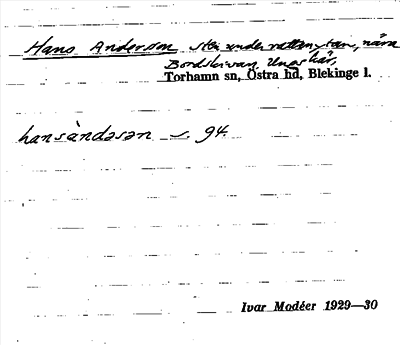 Hans Andersson sten under vattenytan, nära
Bordskivan, Ungskär,
Torhamn sn, Östra hd, Blekinge l.
hansàndəsən s. 94.
Ivar Modéer 1929—30